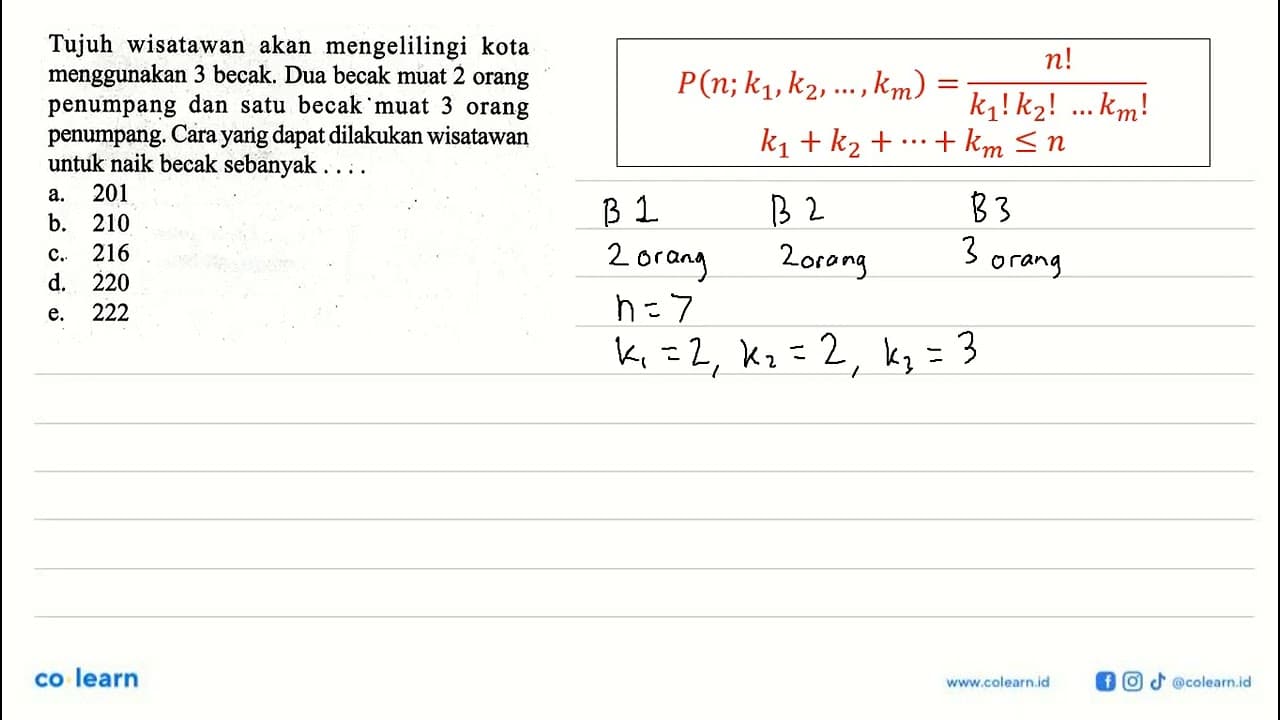 Tujuh wisatawan akan mengelilingi kota
menggunakan 3 becak. Dua becak muat 2 orang
penumpang dan satu becak muat 3 orang
penumpang. Cara yang dapat dilakukan wisatawan
untuk naik becak sebanyak . . . .
a. 201
b. 210
c. 216
d. 220
e. 222
P(n; k₁, k₂, ..., kₘ) = n! / (k₁! k₂! ... kₘ!)
k₁ + k₂ + ⋯ + kₘ ≤ n
B 1 B 2 B 3
2 orang 2 orang 3 orang
n = 7
k₁ = 2, k₂ = 2, k₃ = 3
co learn
www.colearn.id @colearn.id